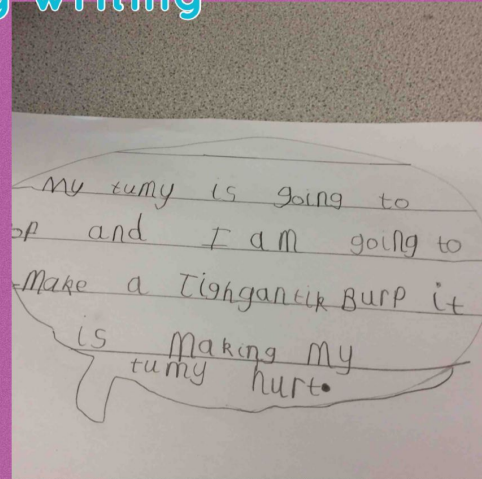 writing
My tumy is going to
and I am going to
Make a Tighgantik Burp it
is Making My
tumy hurt.